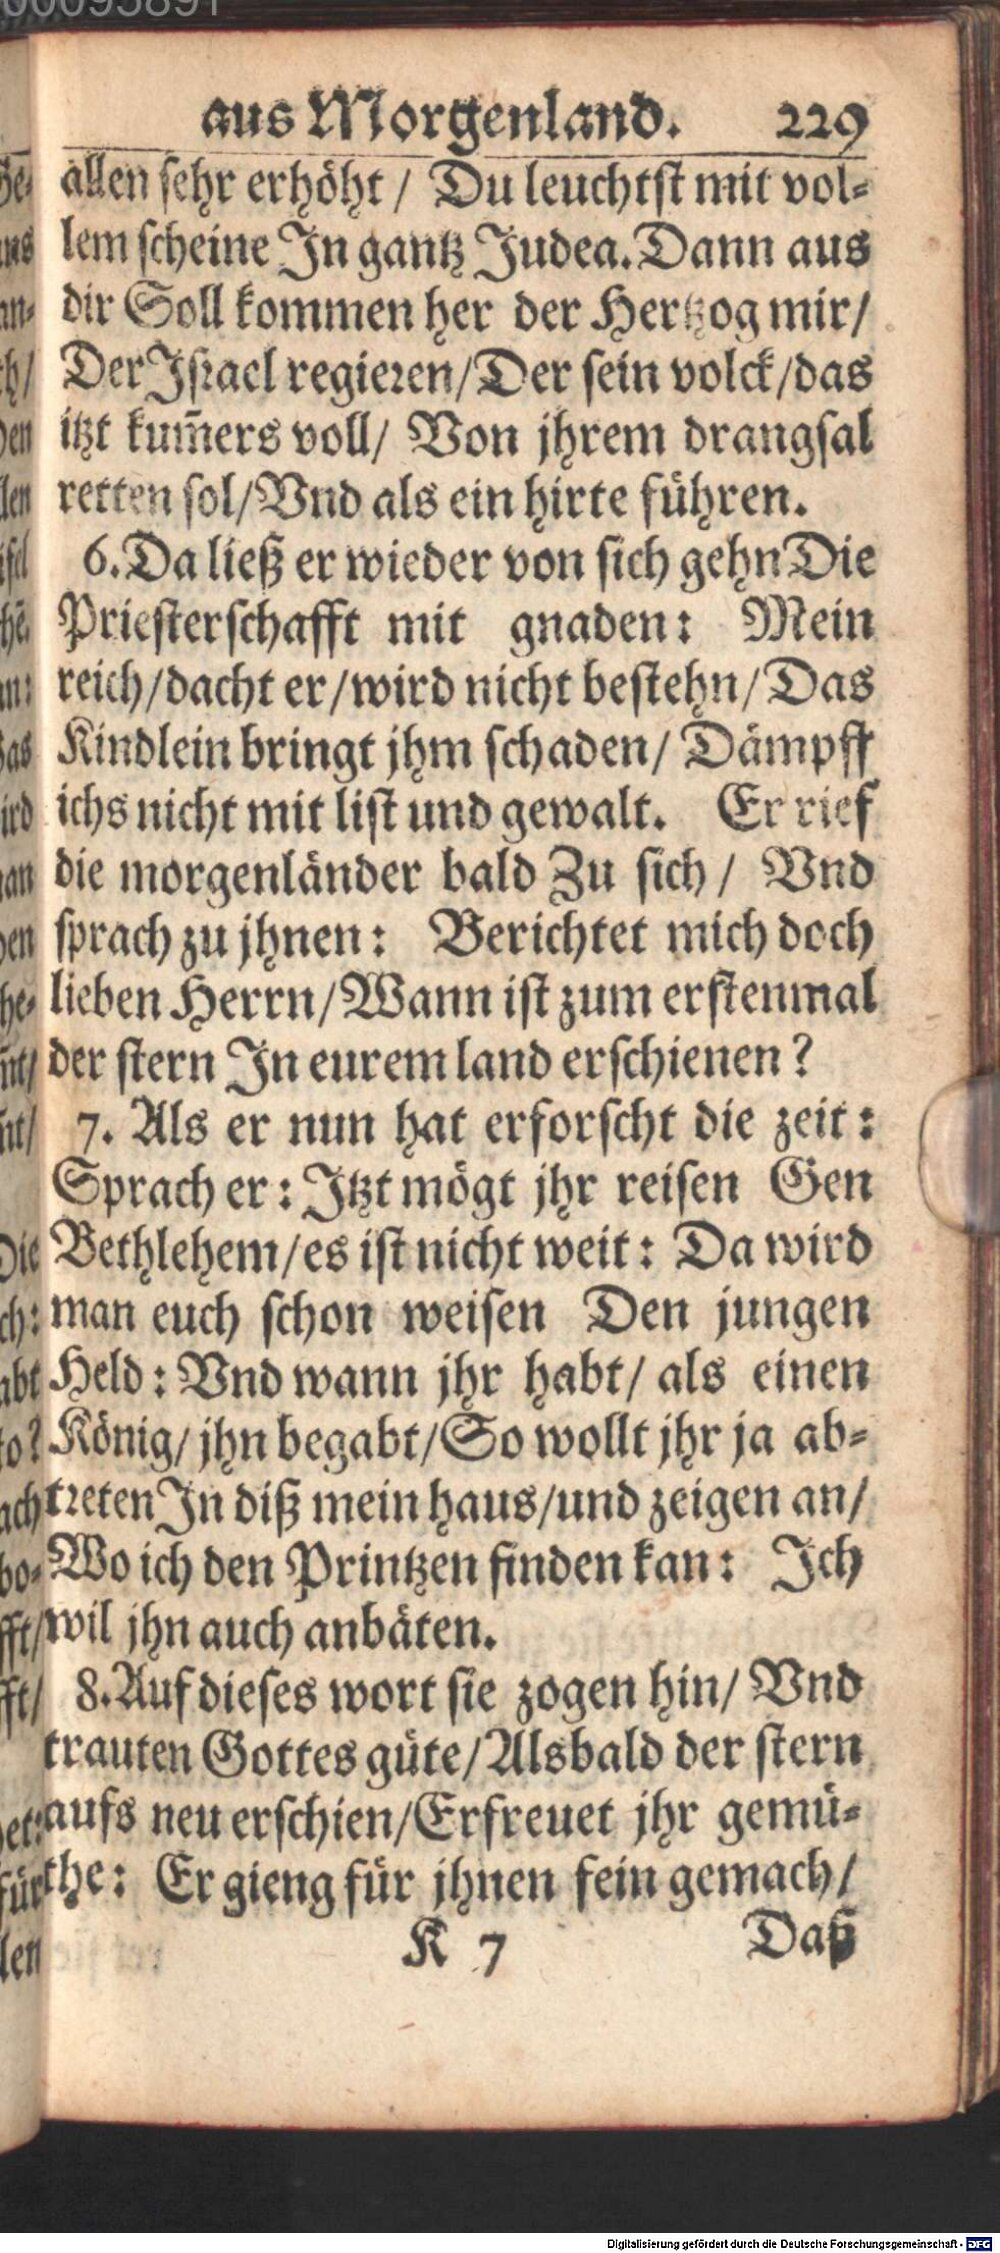 00095891
aus Morgenland. 229
allen sehr erhöht / Du leuchtst mit vol⸗
lem scheine In gantz Judea. Dann aus
dir Soll kommen her der Hertzog mir/
Der Israel regieren/Der sein volck/das
itzt kum̃ers voll/ Von jhrem drangsal
retten sol/Vnd als ein hirte führen.
6. Da ließ er wieder von sich gehn Die
Priesterschafft mit gnaden: Mein
reich/dacht er/wird nicht bestehn/Das
Kindlein bringt jhm schaden/ Dämpff
ichs nicht mit list und gewalt. Er rief
die morgenländer bald Zu sich / Vnd
sprach zu jhnen: Berichtet mich doch
lieben Herrn/Wann ist zum erstenmal
der stern In eurem land erschienen?
7. Als er nun hat erforscht die zeit:
Sprach er: Itzt mögt jhr reisen Gen
Bethlehem/es ist nicht weit: Da wird
man euch schon weisen Den jungen
Held: Vnd wann jhr habt/ als einen
König/ jhn begabt/So wollt jhr ja ab⸗
treten In diß mein haus/und zeigen an/
Wo ich den Printzen finden kan: Ich
wil jhn auch anbäten.
8. Auf dieses wort sie zogen hin/ Vnd
trauten Gottes güte/Alsbald der stern
aufs neu erschien/Erfreuet jhr gemü⸗
the: Er gieng für jhnen fein gemach/
K 7 Daß
Digitalisierung gefördert durch die Deutsche Forschungsgemeinschaft - DFG